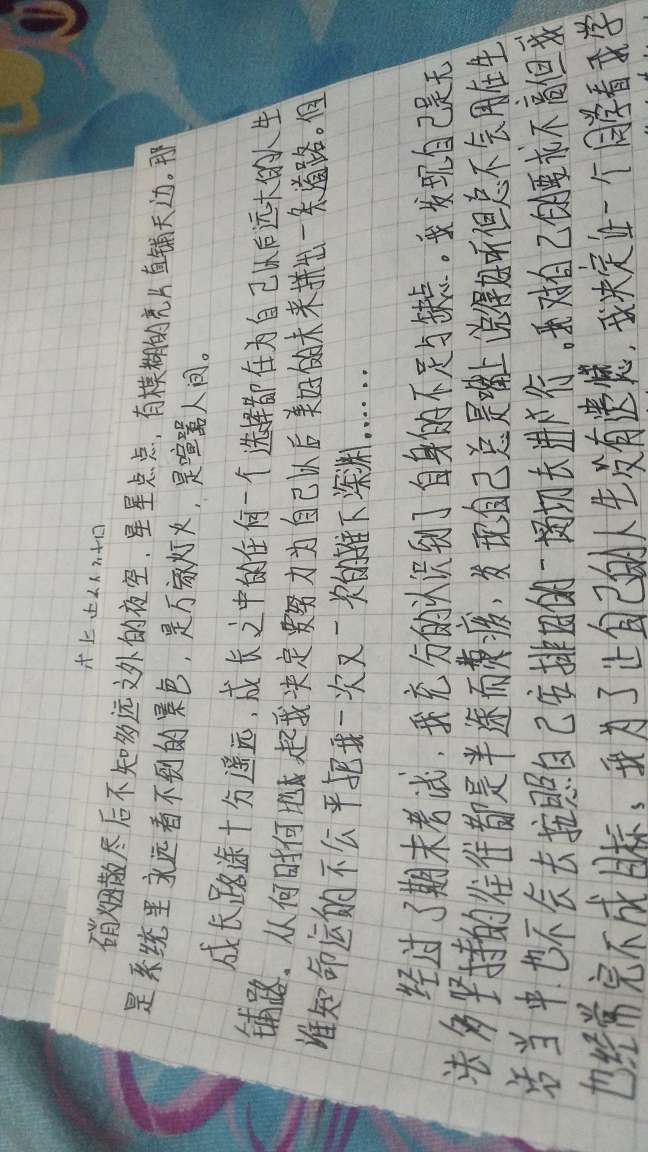 硝烟散尽后不知多远之外的夜空，星星点点，有模糊的亮片直铺天边。那
是系统里永远看不到的景色，是万家灯火，是喧嚣人间。
成长路途十分遥远，成长之中的任何一个选择都在为自己以后远大的人生
铺路。从何时何地起我决定要努力为自己以后美好的未来拼出一条道路。但
谁知命运的不公平把我一次又一次的推下深渊……
经过了期末考试，我充分的认识到了自身的不足与缺点。我发现自己是无
法多坚持的往往都是半途而废，发现自己总是嘴上说得好听但总不会用在生
活当中.也不会去按照自己安排的一切去进行。我对自己的要求不高但我
也经常完不成目标。我为了让自己的人生没有遗憾，我决定让一个同学看我学